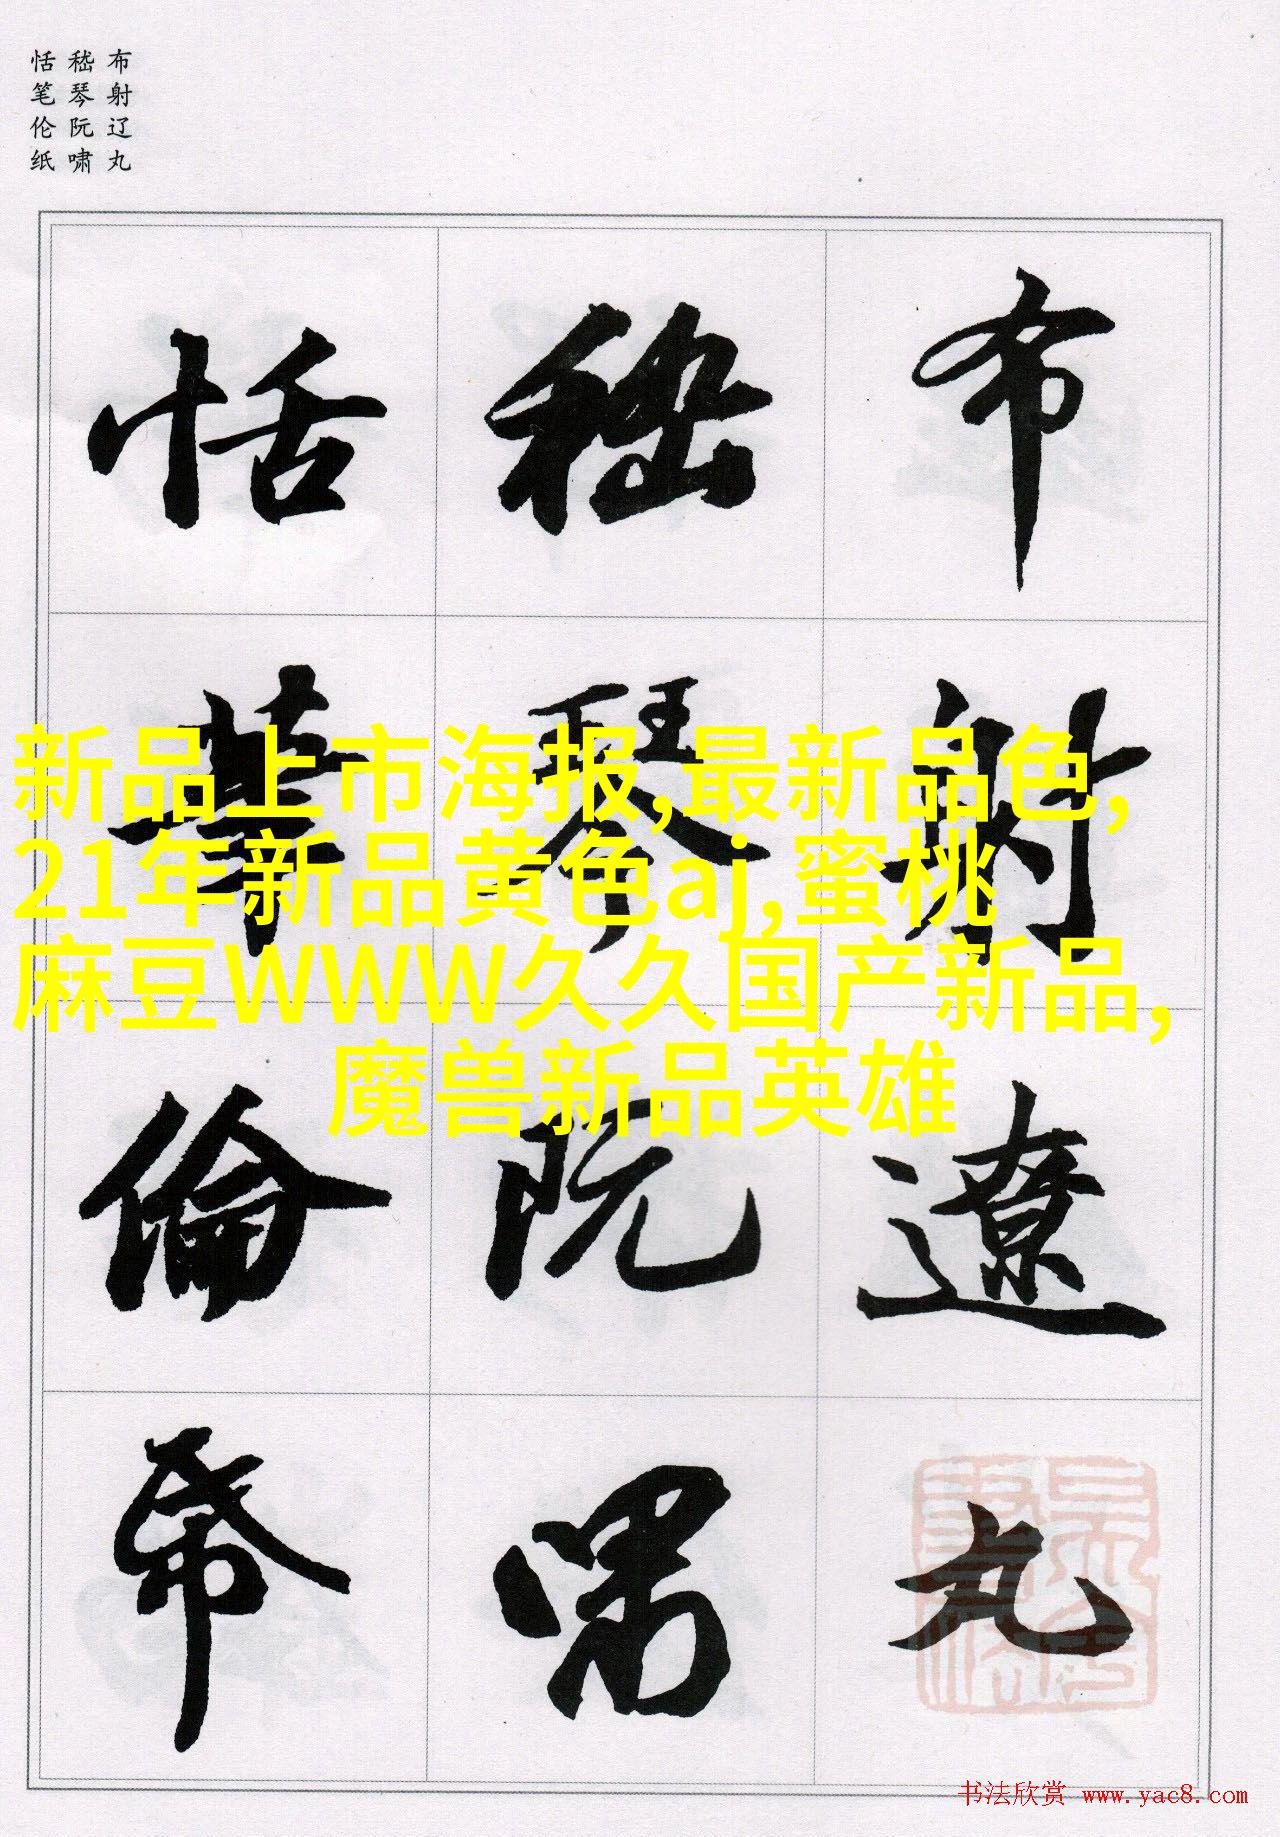 布射辽丸
嵇琴阮啸
恬笔伦纸
布射遼丸
嵇琴阮嘯
恬筆倫帋
新品上市海报,最新品色,
21年新品黄色aj,蜜桃
麻豆WWW久久国产新品,
魔兽新品英雄
书法欣赏 www.yac8.com